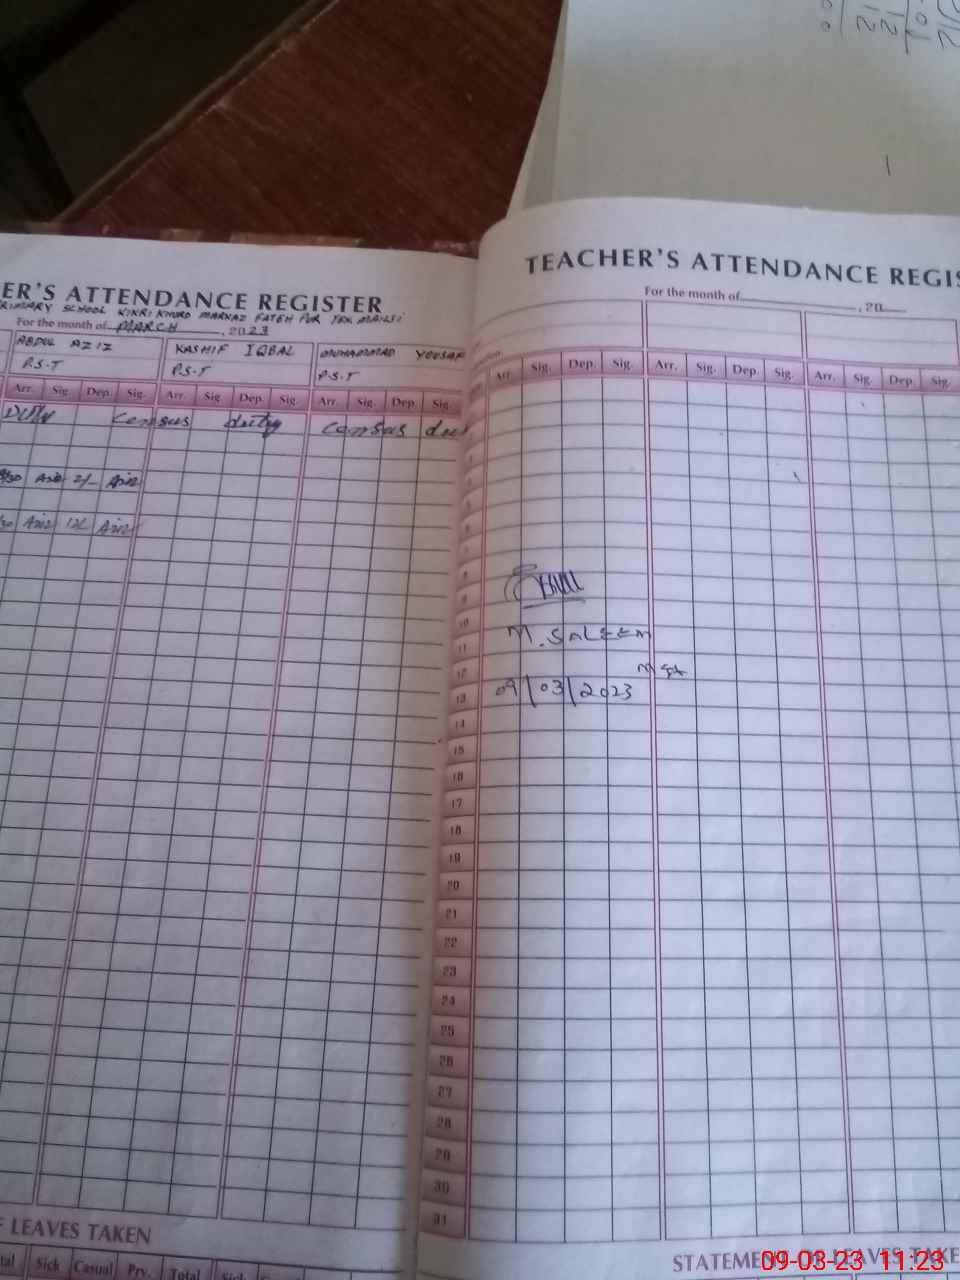 ER'S ATTENDANCE REGISTER
PRIMARY SCHOOL KIKRI KHURD MARKAZ FATEH PUR TEH MAILSI
For the month of MARCH, 2023
ABDUL AZIZ KASHIF IQBAL MUHAMMAD YOUSAF
P.S.T P.S.T P.S.T
Arr. Sig. Dep. Sig. Arr. Sig. Dep. Sig. Arr. Sig. Dep. Sig.
Duty Census duty Census
2/- Aziz
Aziz 12/ Aziz
F LEAVES TAKEN
Sick Casual Prv. Total Sick
TEACHER'S ATTENDANCE REGIS
For the month of , 20
Arr. Sig. Dep. Sig. Arr. Sig. Dep. Sig. Arr. Sig. Dep. Sig.
8
9
10
11 M. SALEEM
12
13 09/03/2023
14
15
16
17
18
19
20
21
22
23
24
25
26
27
28
29
30
31
STATEMENT OF LEAVES TAKE
09-03-23 11:23